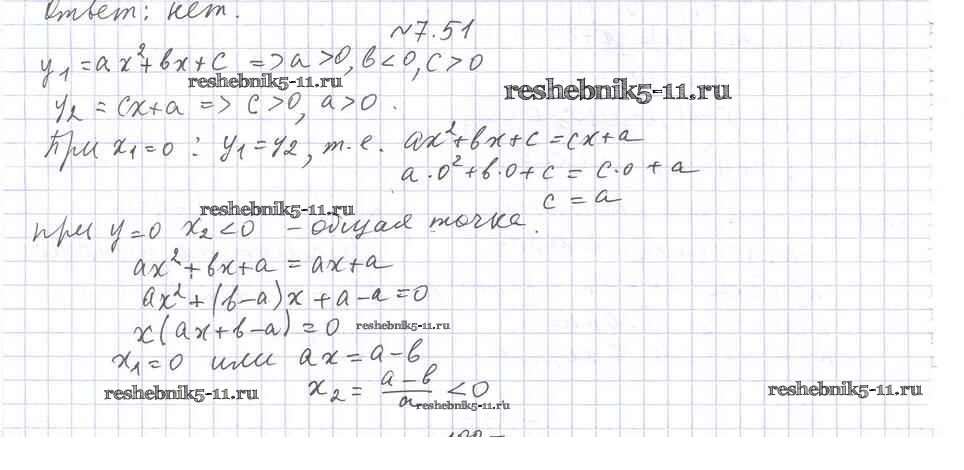 Ответ: нет.
№7.51
y₁ = ax² + bx + c => a > 0, b < 0, c > 0
reshebnik5-11.ru
reshebnik5-11.ru
y₂ = cx + a => c > 0, a > 0.
При x₁ = 0 : y₁ = y₂, т.е. ax² + bx + c = cx + a
a · 0² + b · 0 + c = c · 0 + a
c = a
reshebnik5-11.ru
при y = 0 x₂ < 0 – общая точка.
ax² + bx + a = ax + a
ax² + (b – a)x + a – a = 0
x(ax + b – a) = 0
reshebnik5-11.ru
x₁ = 0 или ax = a – b
x₂ = (a – b)/a < 0
reshebnik5-11.ru
reshebnik5-11.ru
reshebnik5-11.ru